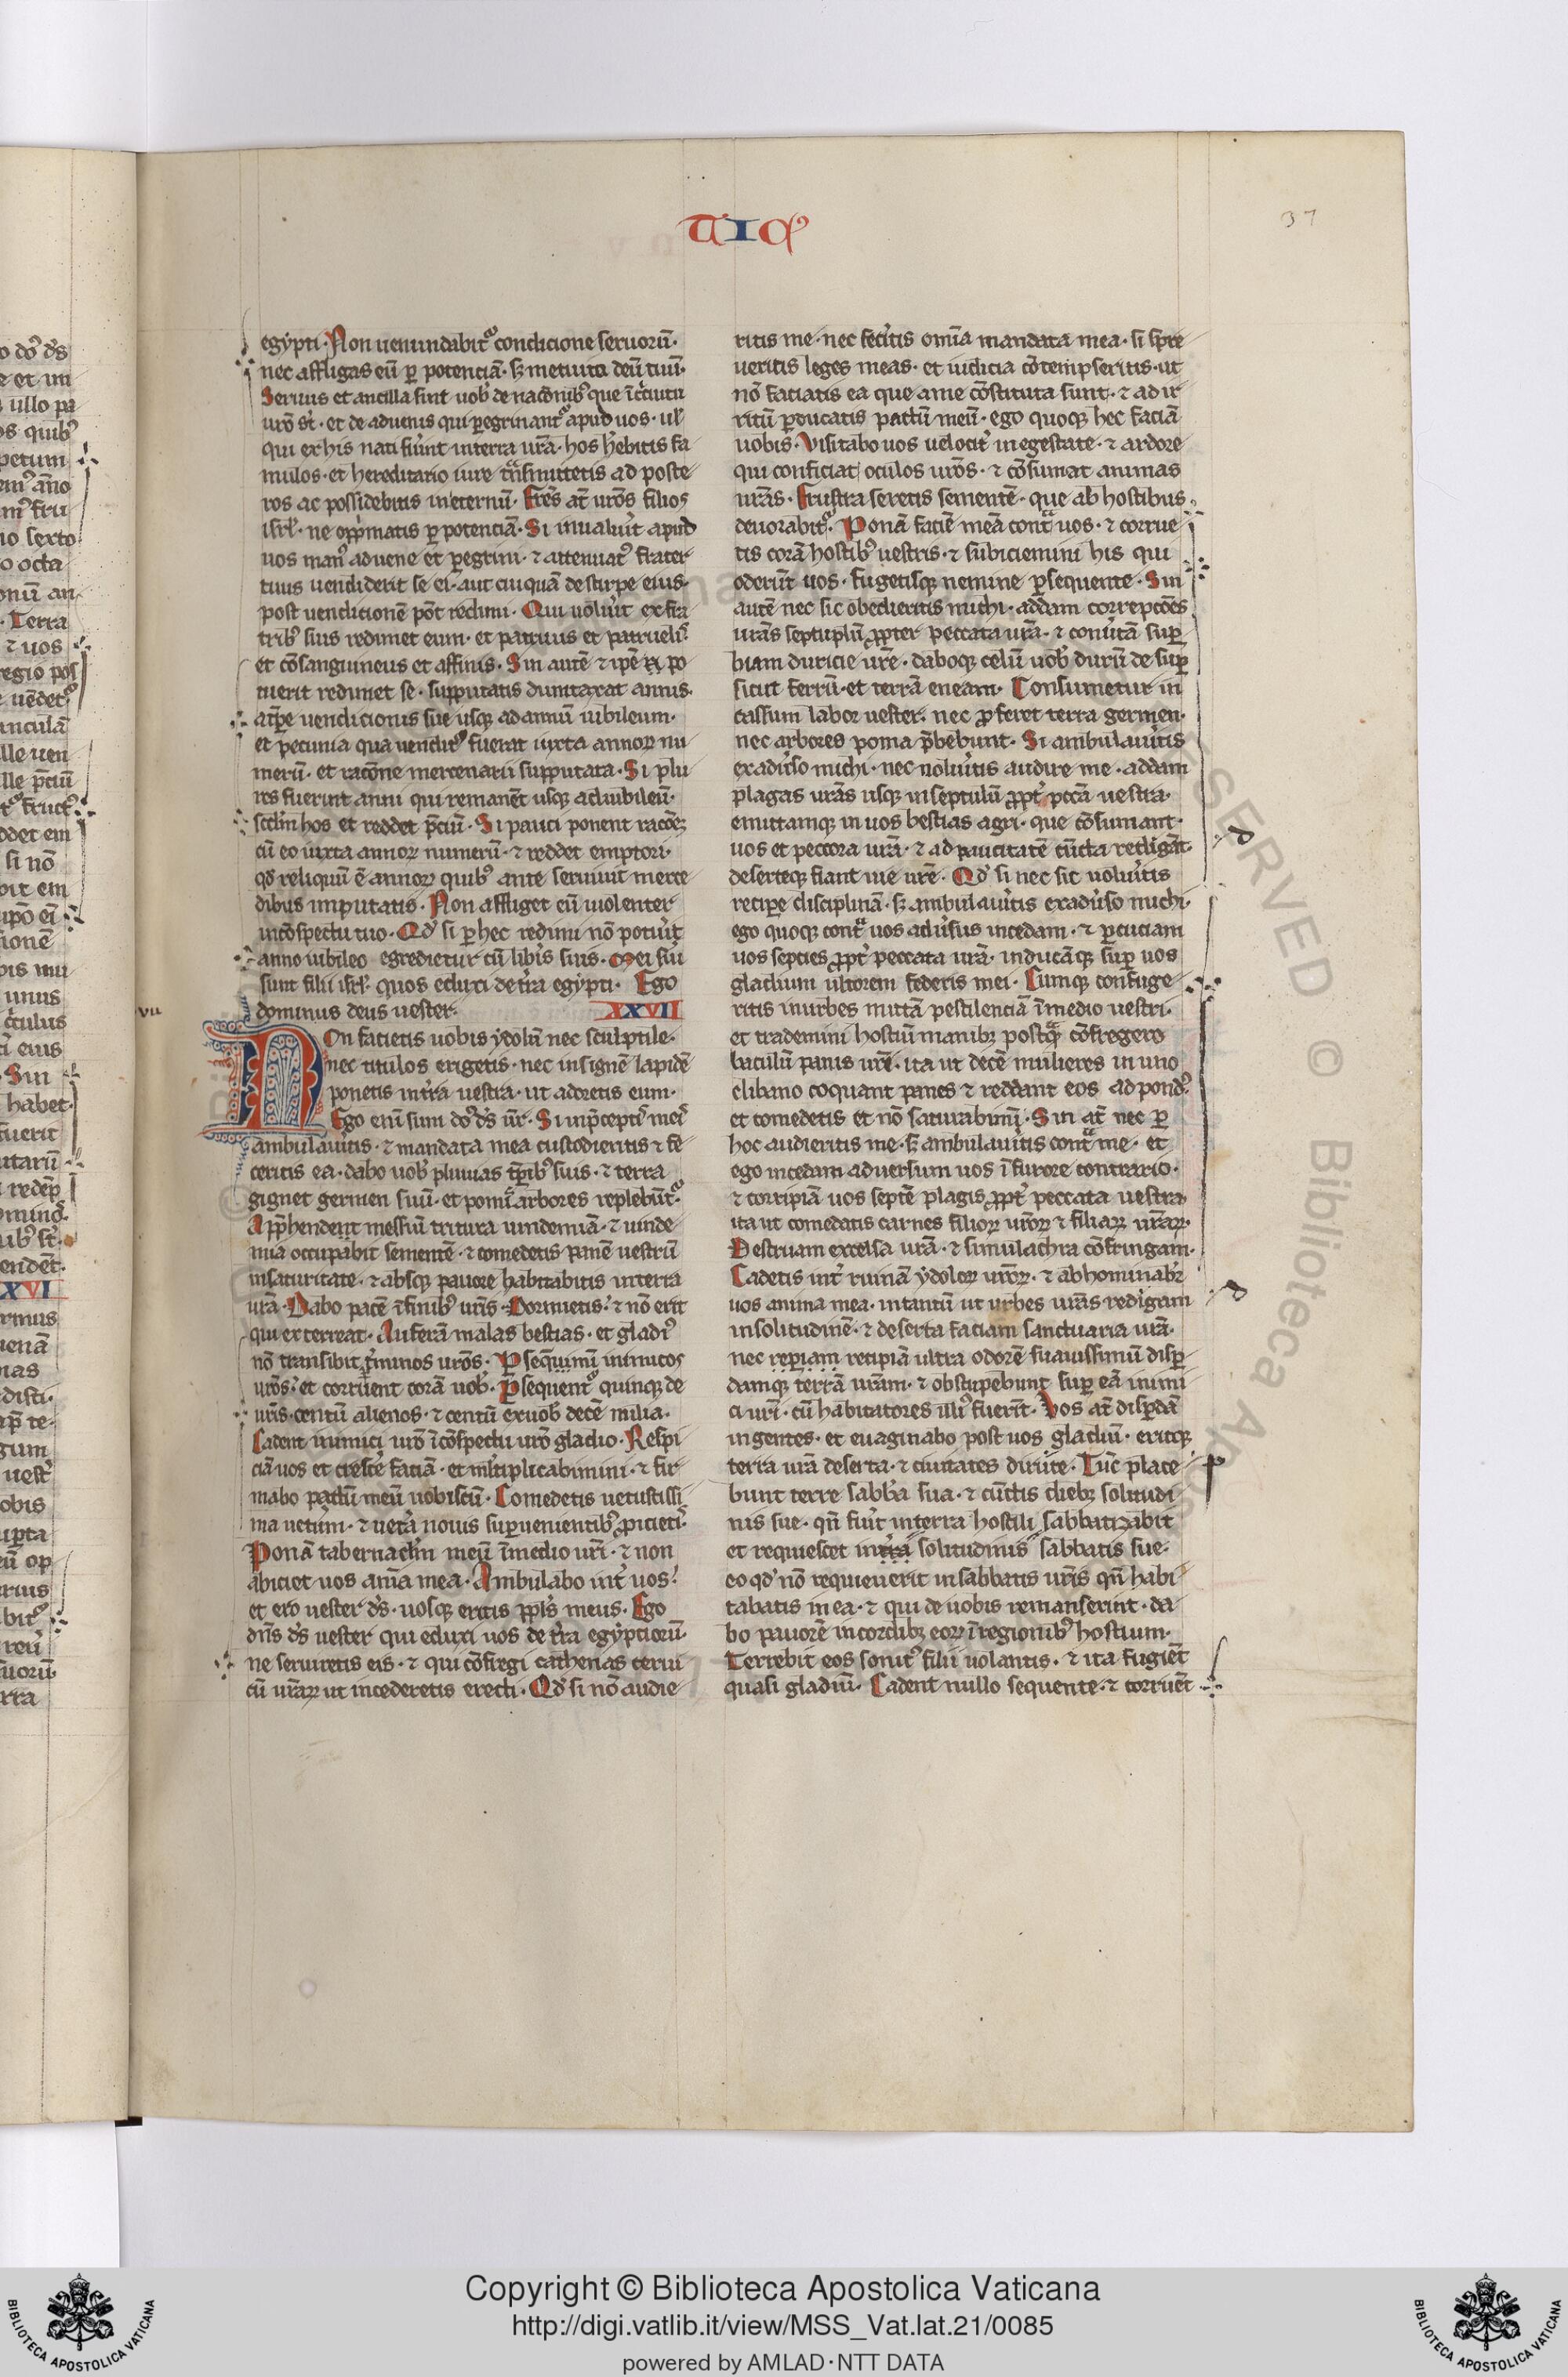 TIC᷒
37
egypti. Non uenundabit᷑ condicione seruoꝝ.
nec affligas eū ꝑ potenciā. sꝫ metuito deū tuū.
Seruus et ancilla sint uob᷒ de nac̄onib᷒ que ī c̓cuitu
ur̄o st̄. et de aduenis qui pegrinant᷑ apud uos. ul̓
qui ex his nati fu̓int in terra ur̄a. hos h̓ebitis fa
mulos. et hereditario iure t̃nsmittetis ad poste
ros ac possidebitis in eternū. Fr̄es at̄ ur̄os filios
isrl̓. ne opp̓matis ꝑ potenciā. Si inualu̓it apud
uos man᷒ aduene et pegrini. ⁊ attenuat᷒ frater
tuus uendiderit se ei. aut cuiquā de stirpe eius.
post uendicionē pōt redimi. Qui uolu̓it ex fra
trib᷒ suis redimet eum. et patruus et patrueli᷒
et cōsanguineus et affinis. Sin autē ⁊ ip̄e po
tuerit redimet se. supputatis dumtaxat annis.
a tp̄e uendicionis sue usqꝫ ad annū iubileum.
et pecunia qua uendit᷒ fuerat iuxta annoꝝ nu
merū. et racōne mercenarii supputata. Si plu
res fuerint anni qui remanēt usqꝫ ad iubileū.
scd̓m hos et reddet p̄ciū. Si pauci ponent racōeꝫ
cū eo iuxta annoꝝ numerū. ⁊ reddet emptori.
qd̓ reliquū ē annoꝝ quib᷒ ante seruiuit merce
dibus imputatis. Non affliget eū uiolenter
in cōspectu tuo. Qd̓ si ꝑ hec redimi nō potu̓it
anno iubileo egredietur cū lib̓is suis. Mei su̓i
sunt filii isrl̓. quos eduxi de tr̓a egypti. Ego
dominus deus uester. XXVII
vii
Non facietis uobis ydolū nec sculptile.
nec titulos erigetis. nec insignē lapidē
ponetis in tr̓ra uestra. ut adoretis eum.
Ego eni̅ sum do᷒ d̄s ur̄. Si in p̄cepti᷒ mei᷒
ambulau̓itis. ⁊ mandata mea custodieritis ⁊ fe
ceritis ea. dabo uob᷒ pluuias tp̄ib᷒ suis. ⁊ terra
gignet germen suū. et pom̃ arbores replebūt᷑.
App̄hendent messiū tritura uindemiā. ⁊ uinde
mia occupabit sementē. ⁊ comedetis panē uestrū
in saturitate. ⁊ absqꝫ pauore habitabitis in terra
ur̄a. Dabo pacē ī finib᷒ ur̄is. Dormietis. ⁊ nō erit
qui exterreat. Auferā malas bestias. et gladi᷒
nō transibit t̓minos ur̄os. Psequimī inimicos
ur̄os. et corruent corā uob᷒. Psequent᷑ quinqꝫ de
ur̄is. centū alienos. ⁊ centū ex uob᷒ decē milia.
Cadent inimici ur̄o ī cōspectu ur̄o gladio. Respi
ciā uos et cresc̓e faciā. et ml̓tiplicabimini. ⁊ fir
mabo pactū meū uobiscū. Comedetis uetustissi
ma uetum. ⁊ uet̓a nouis supuenientib᷒ ꝓicieti᷒.
Ponā tabernac̄lm meū ī medio ur̄i. ⁊ non
abiciet uos anīa mea. Ambulabo int̓ uos.
et ero uester d̄s. uosqꝫ eritis ppl̓s meus. Ego
dn̄s d̄s uester qui eduxi uos de tr̓a egyptioꝝ.
ne seruiretis eis. ⁊ qui cōfregi cathenas cerui
cū ur̄aꝝ ut incederetis erecti. Qd̓ si nō audie
ritis me. nec fec̓itis omīa mandata mea. si spre
ueritis leges meas. et iudicia cōtempseritis. ut
nō faciatis ea que a me cōstituta sunt. ⁊ ad ir
ritū pducatis pactū meū. ego quoqꝫ hec faciā
uobis. Visitabo uos uelocit̓ in egestate. ⁊ ardore
qui conficiat oculos ur̄os. ⁊ cōsumat animas
ur̄as. Frustra seretis sementē. que ab hostibus
deuorabit᷑. Ponā faciē meā cont̃ uos. ⁊ corrue
tis corā hostib᷒ uestris. ⁊ subiciemini his qui
oderūt uos. fugetisqꝫ nemine psequente. Sin
autē nec sic obedieritis michi. addam correpcōes
ur̄as septuplū ꝓpter peccata ur̄a. ⁊ cont̓ā sup
biam duricie ur̄e. daboqꝫ celū uob᷒ durū de sup
sicut ferrū. et terrā eneam. Consumetur in
cassum labor uester. nec ꝓferet terra germen.
nec arbores poma p̄bebunt. Si ambulau̓itis
ex adu̓so michi. nec nolu̓itis audire me. addam
plagas ur̄as usqꝫ in septulū ꝓpt̓ pccā uestra.
emittamqꝫ in uos bestias agri. que cōsumant
uos et peccora ur̄a. ⁊ ad paucitatē cūcta redigāt.
deserteqꝫ fiant uie ur̄e. Qd̓ si nec sic uolu̓itis
recipe disciplinā. sꝫ ambulau̓itis ex adu̓so michi.
ego quoqꝫ cont̃ uos adu̓sus incedam. ⁊ pcutiam
uos septies ꝓpt̓ peccata ur̄a. inducāqꝫ sup uos
gladium ultorem federis mei. Cumqꝫ confuge
ritis in urbes mittā pestilenciā ī medio uestri.
et trademini hostiū manibꝫ postq̃ cōfregero
baculū panis ur̄i. ita ut decē mulieres in uno
clibano coquant panes ⁊ reddant eos ad pond᷒.
et comedetis et nō saturabimī. Sin at̄ nec ꝑ
hoc audieritis me. sꝫ ambulau̓itis cont̃ me. et
ego incedam aduersum uos ī furore contrario.
⁊ corripiā uos septē plagis ꝓpt̓ peccata uestra
ita ut comedatis carnes filioꝝ ur̄oꝝ ⁊ filiaꝝ ur̄aꝝ.
Destruam excelsa ur̄a. ⁊ simulachra cōfringam.
Cadetis int̓ ruinā ydoloꝝ ur̄oꝝ. ⁊ abhominab᷒r
uos anima mea. in tantū ut urbes ur̄as redigam
in solitudinē. ⁊ deserta faciam sanctuaria ur̄a.
nec repiam recipiā ultra odorē suauissimū disp
damqꝫ terrā ur̄am. ⁊ obstupebunt sup eā inimi
ci ur̄i. cū habitatores illi᷒ fuerīt. Vos at̄ dispdā
in gentes. et euaginabo post uos gladiū. eritqꝫ
terra ur̄a deserta. ⁊ ciuitates dirute. Tūc place
bunt terre sabb̓a sua. ⁊ cūctis diebꝫ solitudi
nis sue. qn̄ fu̓it in terra hostili sabbatizabit
et requiescet in solitudinis sabbatis sue.
eo qd̓ nō requieuerit in sabbatis ur̄is qn̄ habi
tabatis in ea. ⁊ qui de uobis remanserint. da
bo pauorē in cordibꝫ eoꝝ ī regionib᷒ hostium.
Terrebit eos sonit᷒ filii uolantis. ⁊ ita fugiēt
quasi gladiū. Cadent nullo sequente. ⁊ corruēt
Copyright © Biblioteca Apostolica Vaticana
http://digi.vatlib.it/view/MSS_Vat.lat.21/0085
powered by AMLAD·NTT DATA
BIBLIOTECA APOSTOLICA VATICANA
BIBLIOTECA APOSTOLICA VATICANA